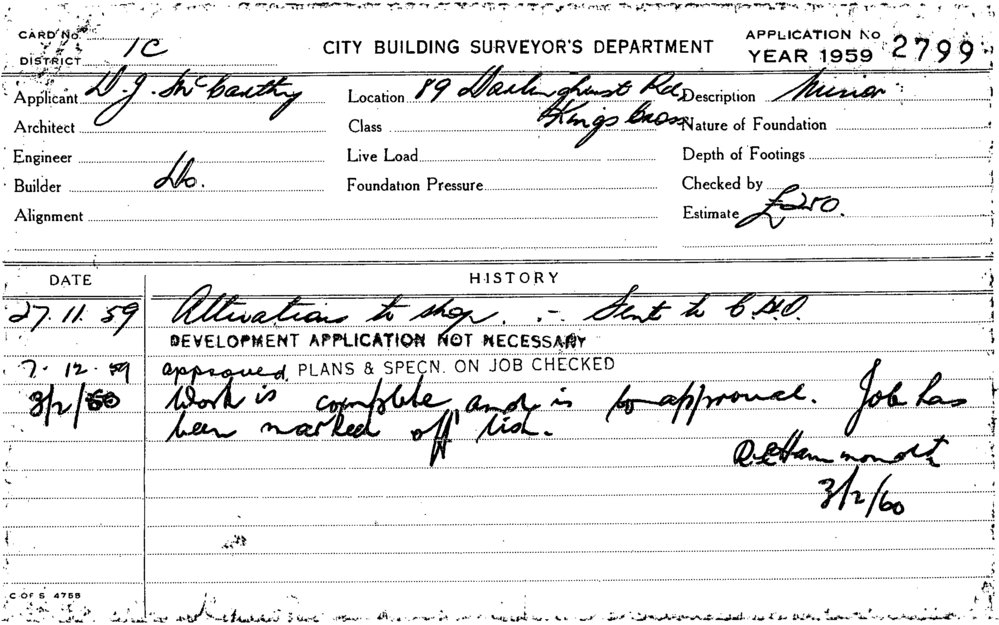 CARD No.
DISTRICT 1C
CITY BUILDING SURVEYOR'S DEPARTMENT
APPLICATION No 2799
YEAR 1959
Applicant D. J. McCarthy
Location 89 Darlinghurst Rd, Kings Cross
Description Minor
Architect
Class
Nature of Foundation
Engineer
Live Load
Depth of Footings
Builder Do.
Foundation Pressure
Checked by
Alignment
Estimate £250.
DATE HISTORY
27.11.59 Alterations to shop. :- Sent to C.H.O.
DEVELOPMENT APPLICATION NOT NECESSARY
7.12.59 approved. PLANS & SPECN. ON JOB CHECKED
3/2/60 Work is complete and is to approval. Job has
been marked off list.
Hammond
3/2/60
C OF S 4758